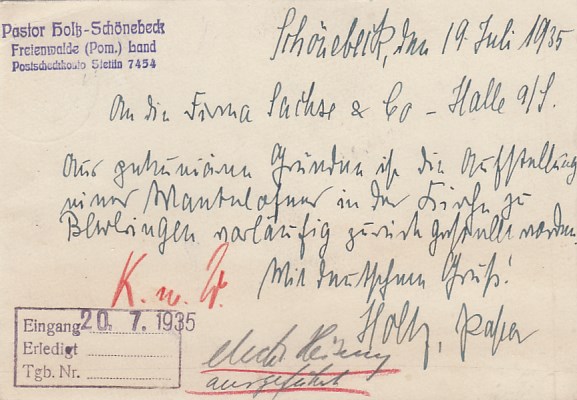 Pastor Holtz-Schönebeck
Freienwalde (Pom.) Land
Postscheckkonto Stettin 7454
Schönebeck, den 19. Juli 1935
An die Firma Sachse & Co - Halle a/S.
Aus pekuniären Gründen ist die Aufstellung
eines Mantelofens in der Kirche zu
vorläufig zurück gestellt worden.
Mit deutschem Gruß!
Holtz, Pastor
K. n. W.
Eingang 20. 7. 1935
Erledigt
Tgb. Nr.
ausgeführt